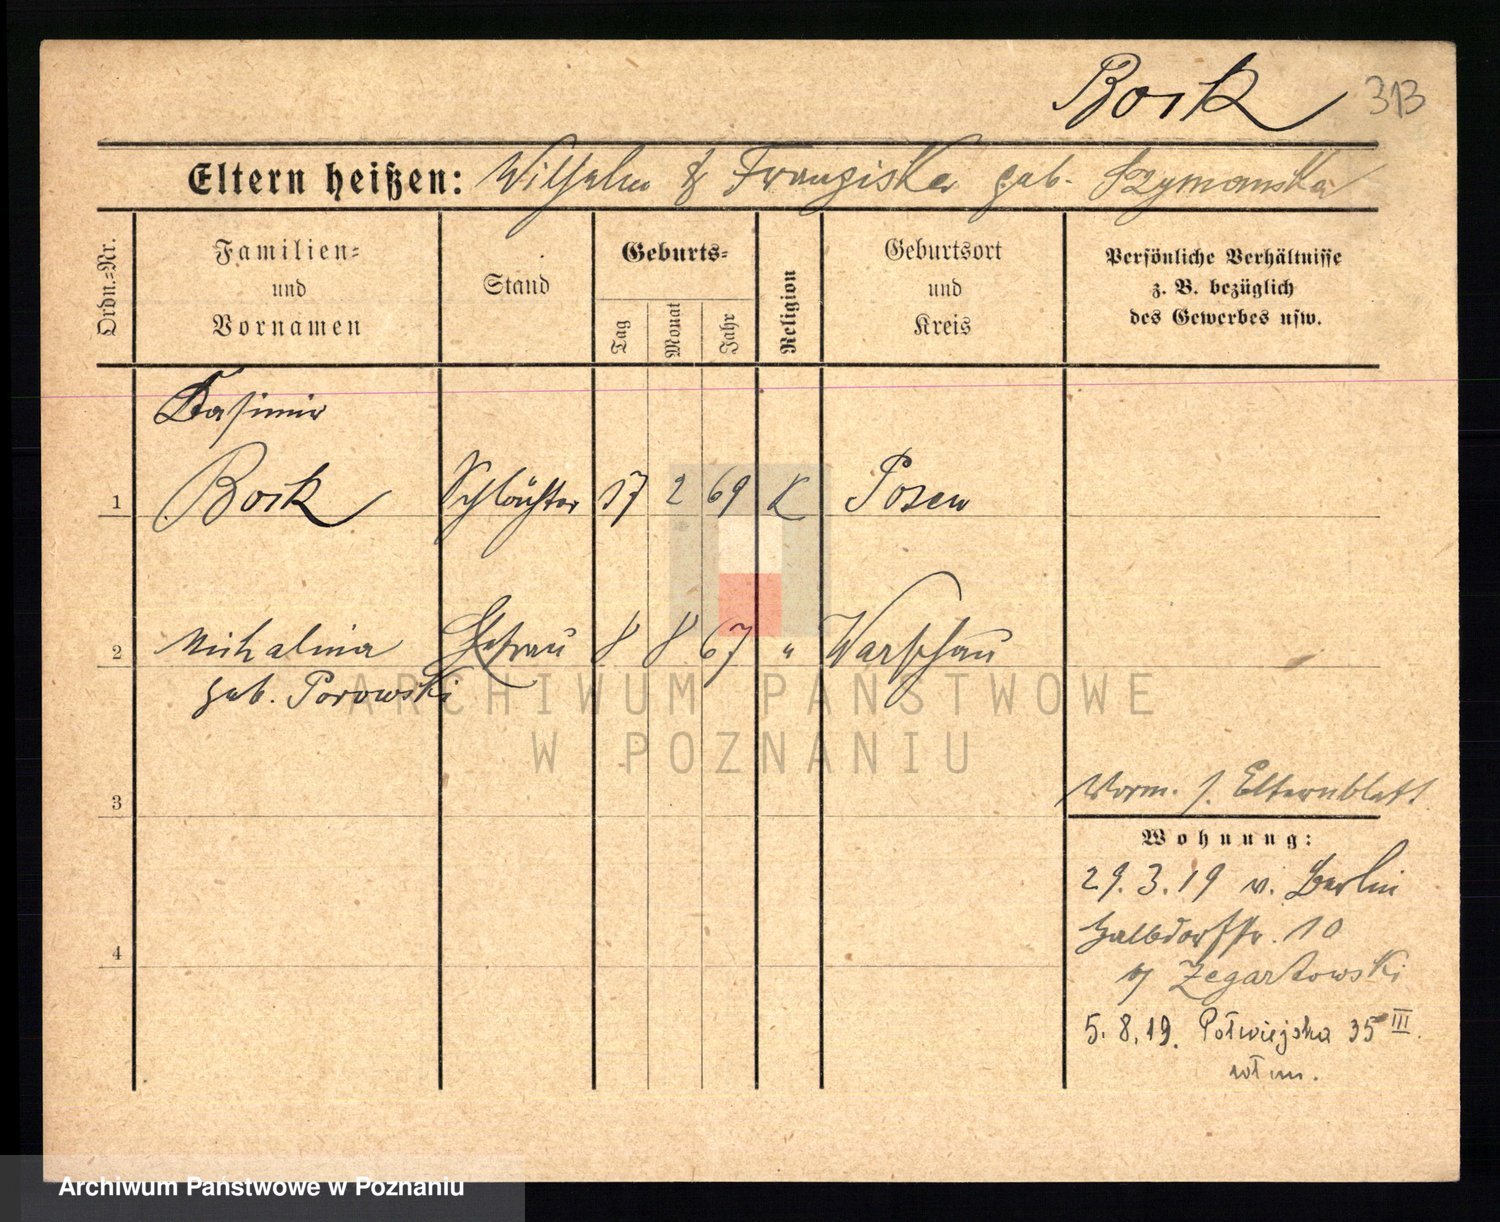 Bosk 313
Eltern heißen: Wilhelm & Franziska geb. Szymanska
Ordn.-Nr.
Familien-
und
Vornamen
Stand
Geburts-
Tag
Monat
Jahr
Religion
Geburtsort
und
Kreis
Persönliche Verhältnisse
z. B. bezüglich
des Gewerbes usw.
Kasimir
1 Bosk Schlächter 17 2 69 K Posen
2 Michalina Ehefrau 8 8 67 " Warschau
geb. Porowski
ARCHIWUM PAŃSTWOWE
W POZNANIU
3
Vorm. s. Elternblatt
Wohnung:
29. 3. 19 v. Berlin
Halbdorfstr. 10
4
b/ Zegartowski
5. 8. 19. Półwiejska 35 III.
wł m.
Archiwum Państwowe w Poznaniu